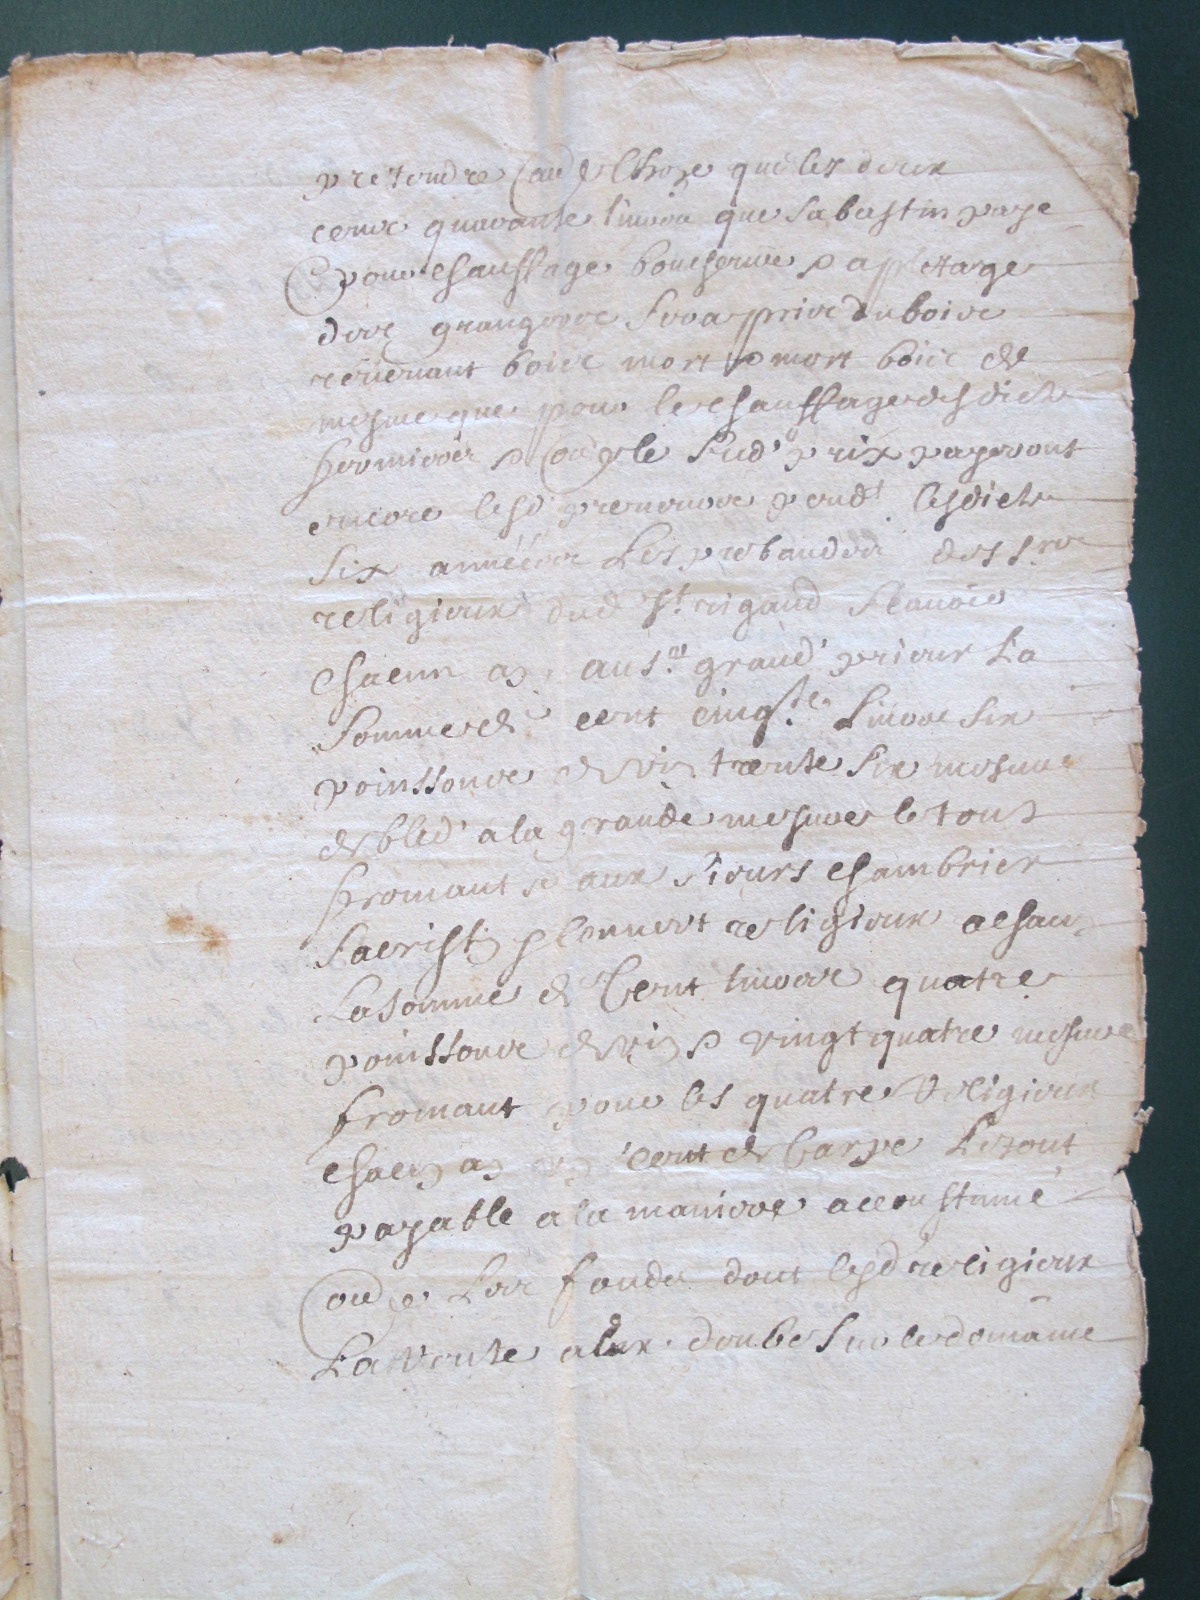 pretendre aude choze que les deux
cens quarante livres que Sabastin paye
pour chauffage boucherie
sera prix du boise
revenant boise mort mort bois de
mesme que pour le chauffage desdicts
fermiers le sud' prix payeront
encore lesd' preneurs pend.t lesdicts
six années Les prebandes des S.rs
religieux dud St. rigaud Scavoir
chacun an au S.r grand' prieur La
somme de cent cinq.te Livres six
poinssons de vin trente six mesures
de bled' a la grande mesure le tout
fromant et aux Sieurs chambrier
Sacristin religieux a chacun
La somme de Cent livres quatre
poinssons de vin et vingt quatre mesures
fromant pour les quatre Religieux
chacun an un cent de Carpe Le tout
payable a la maniere accoustumé
Les fondz dont lesd religieux
La vente a doubs sur le domaine